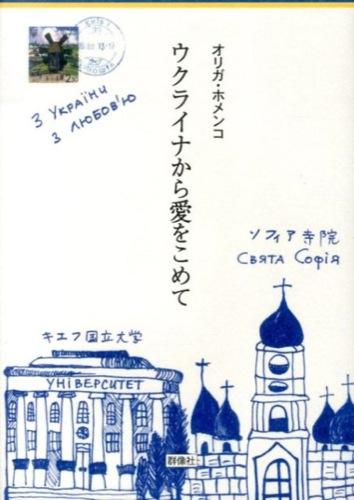 З УКРАЇНИ
З ЛЮБОВ'Ю
オリガ・ホメンコ
ウクライナから愛をこめて
ソフィア寺院
СВЯТА СОФІЯ
キエフ国立大学
УНІВЕРСИТЕТ
群像社